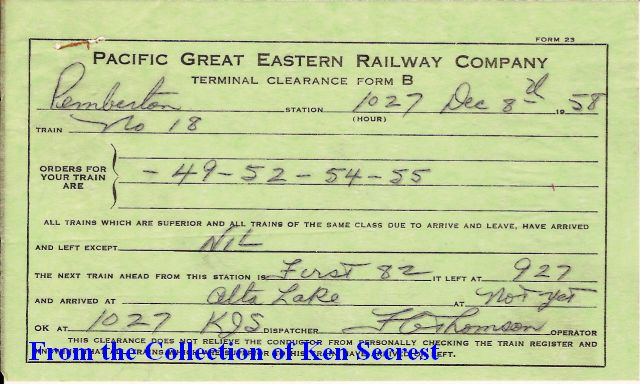 FORM 23
PACIFIC GREAT EASTERN RAILWAY COMPANY
TERMINAL CLEARANCE FORM B
Pemberton STATION 1027 Dec 8 1958
(HOUR)
TRAIN No 18
ORDERS FOR YOUR TRAIN ARE - 49 - 52 - 54 - 55
ALL TRAINS WHICH ARE SUPERIOR AND ALL TRAINS OF THE SAME CLASS DUE TO ARRIVE AND LEAVE, HAVE ARRIVED
AND LEFT EXCEPT NIL
THE NEXT TRAIN AHEAD FROM THIS STATION IS First 82 IT LEFT AT 927
AND ARRIVED AT Alta Lake AT Not yet
OK AT 1027 KJS DISPATCHER Thomson OPERATOR
THIS CLEARANCE DOES NOT RELIEVE THE CONDUCTOR FROM PERSONALLY CHECKING THE TRAIN REGISTER AND
From the Collection of Ken Secrest